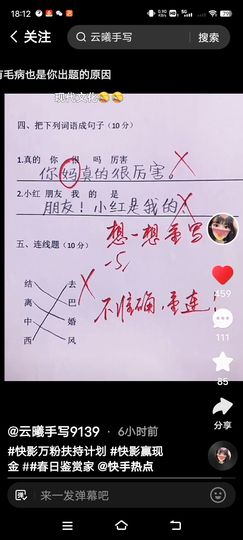 18:12
关注
云曦手写
搜索
有毛病也是你出题的原因
现代文化
四、把下列词语成句子(10分)
1.真的 你 很 吗 厉害
你妈真的很厉害。
2.小红 朋友 我 的 是
朋友!小红是我的.
想一想重写
-5,
五、连线题(10分)
结 去
离 巴
中 婚
西 风
不准确,重连!
459
111
85
分享
@云曦手写9139 · 6小时前
#快影万粉扶持计划 #快影赢现
金 ##春日鉴赏家 @快手热点
来一发弹幕吧